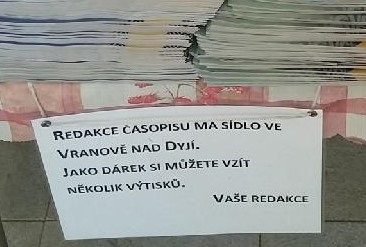 REDAKCE ČASOPISU MA SÍDLO VE
VRANOVĚ NAD DYJÍ.
JAKO DÁREK SI MŮŽETE VZÍT
NĚKOLIK VÝTISKŮ.
VAŠE REDAKCE